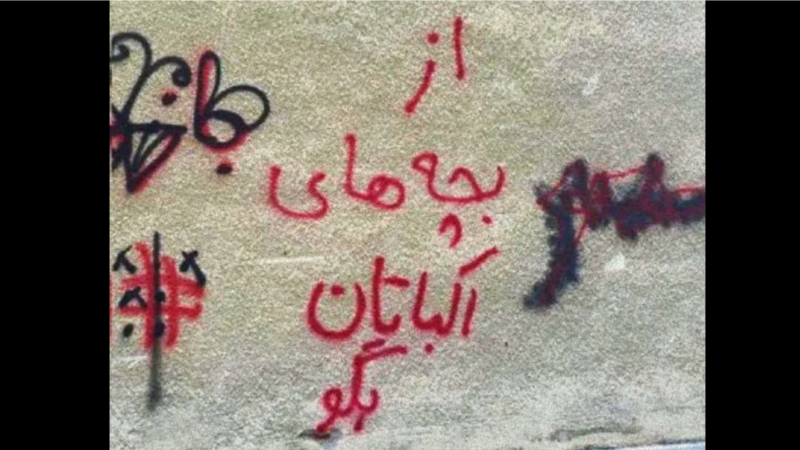 از
بچه های
اکباتان
بگو